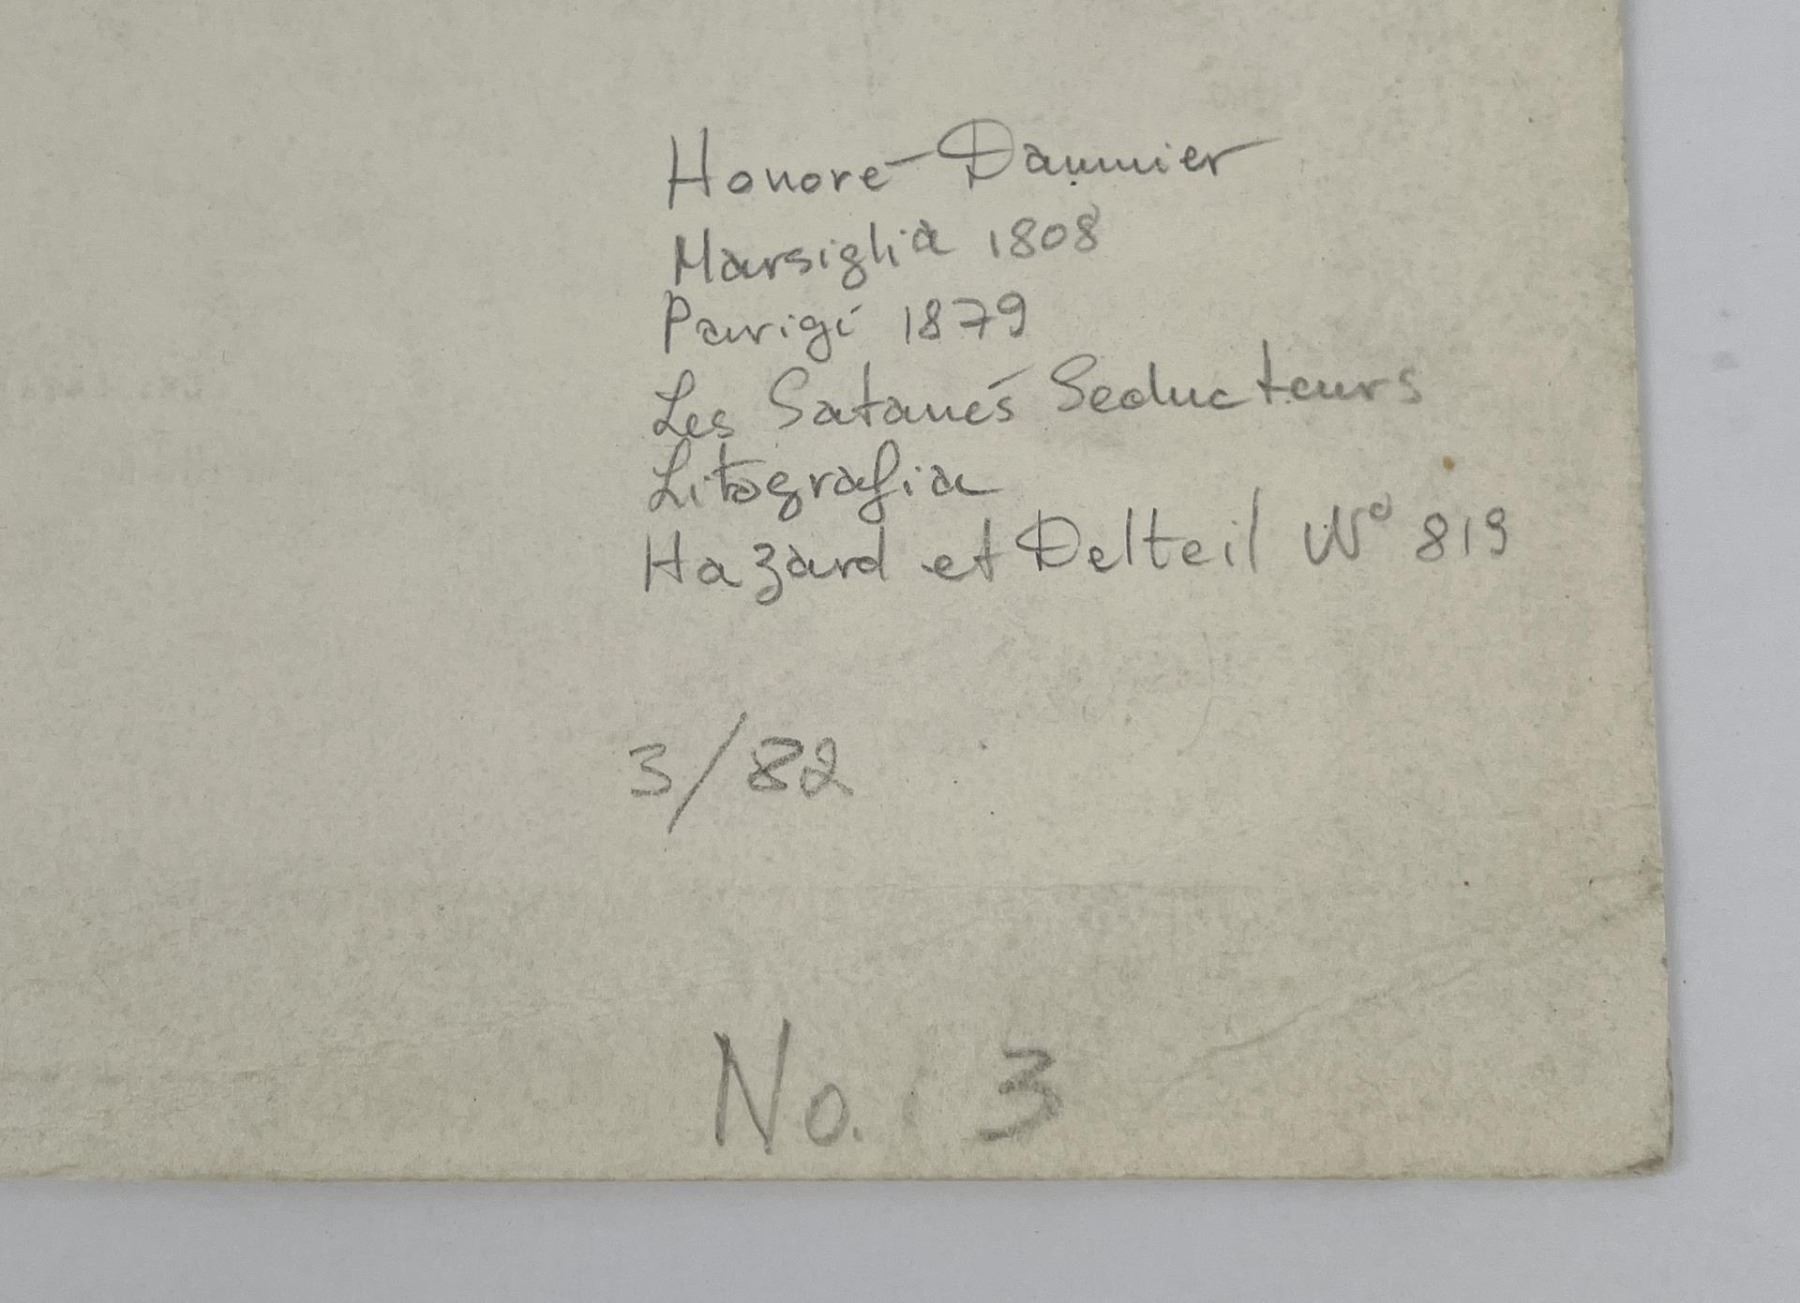 Honoré Daumier
Marsiglia 1808
Parigi 1879
Les Satanés Seducteurs
Litografia
Hazard et Delteil N° 819
3/82
No. 3